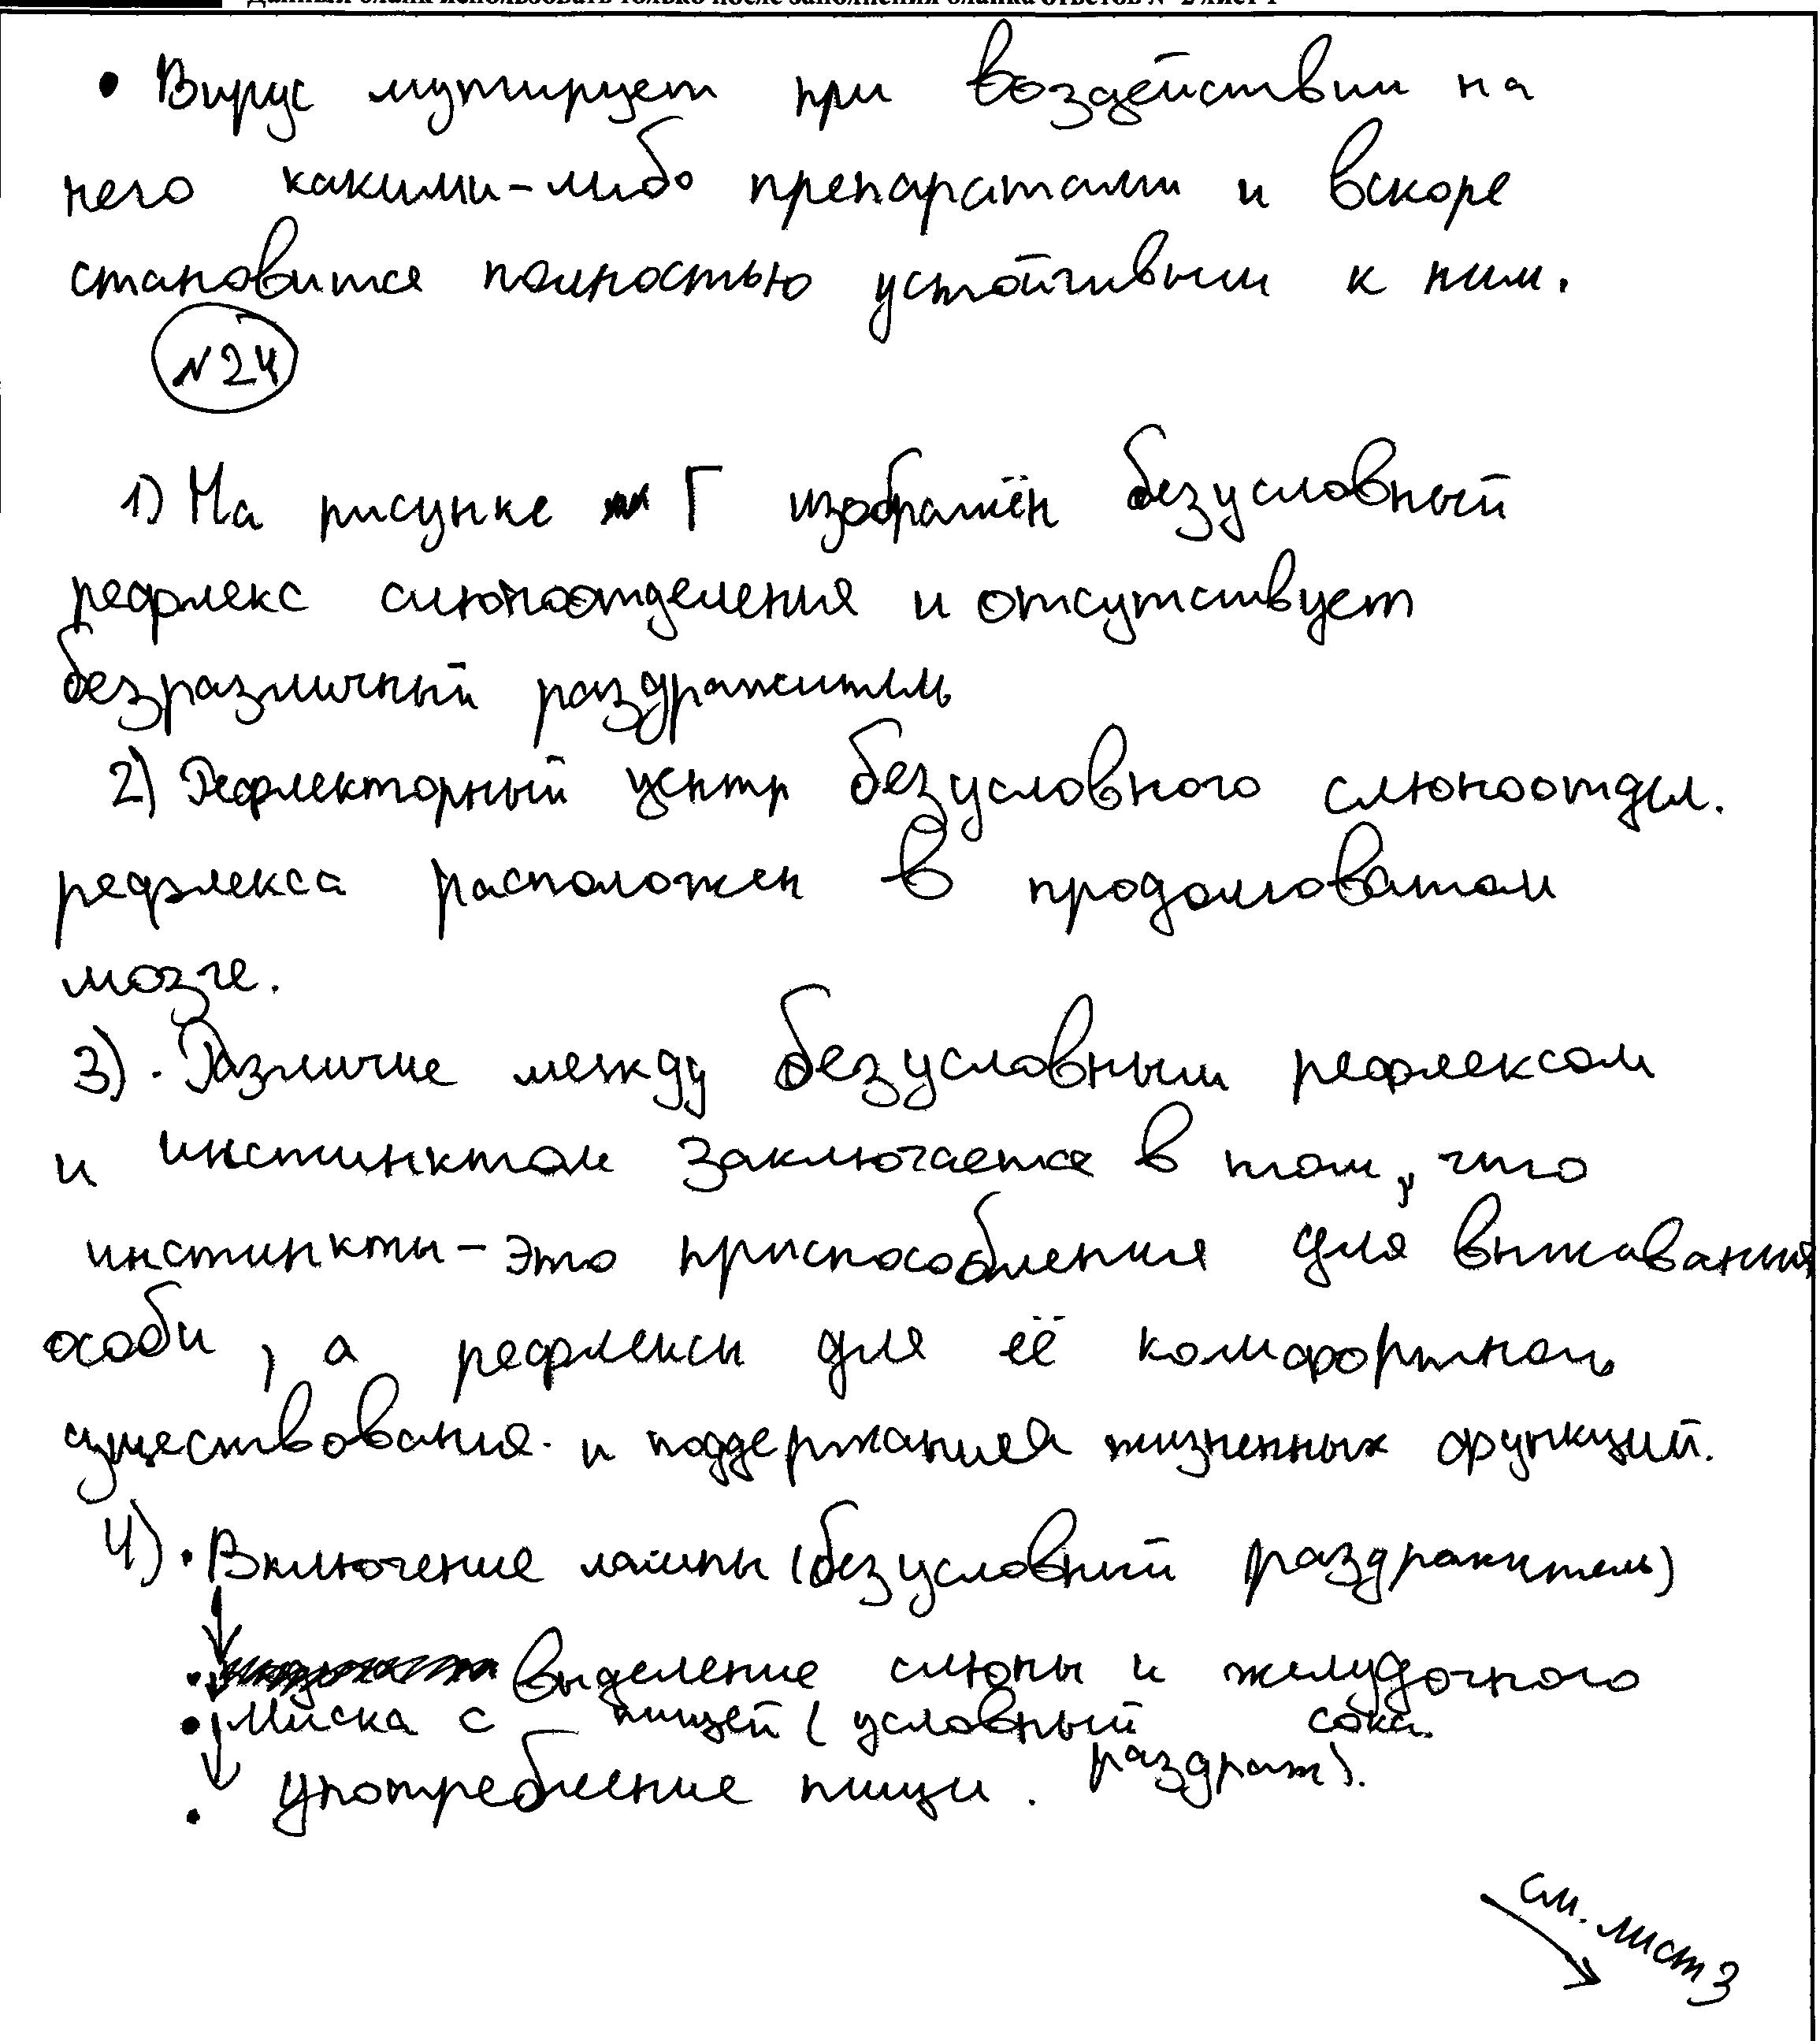 • Вирус мутирует при воздействии на
него какими-либо препаратами и вскоре
становится полностью устойчивым к ним.
№24
1) На рисунке Г изображён безусловный
рефлекс слюноотделения и отсутствует
безразличный раздражитель
2) Рефлекторный центр безусловного слюноотдел.
рефлекса расположен в продолговатом
мозге.
3) · Различие между безусловным рефлексом
и инстинктом заключается в том, что
инстинкты – это приспособления для выживания
особи, а рефлексы для её комфортного
существования и поддержания жизненных функций.
4) • Включение лампы (безусловный раздражитель)
• выделение слюны и желудочного
сока.
• Миска с пищей (условный
раздраж).
• употребление пищи.
см. лист 3